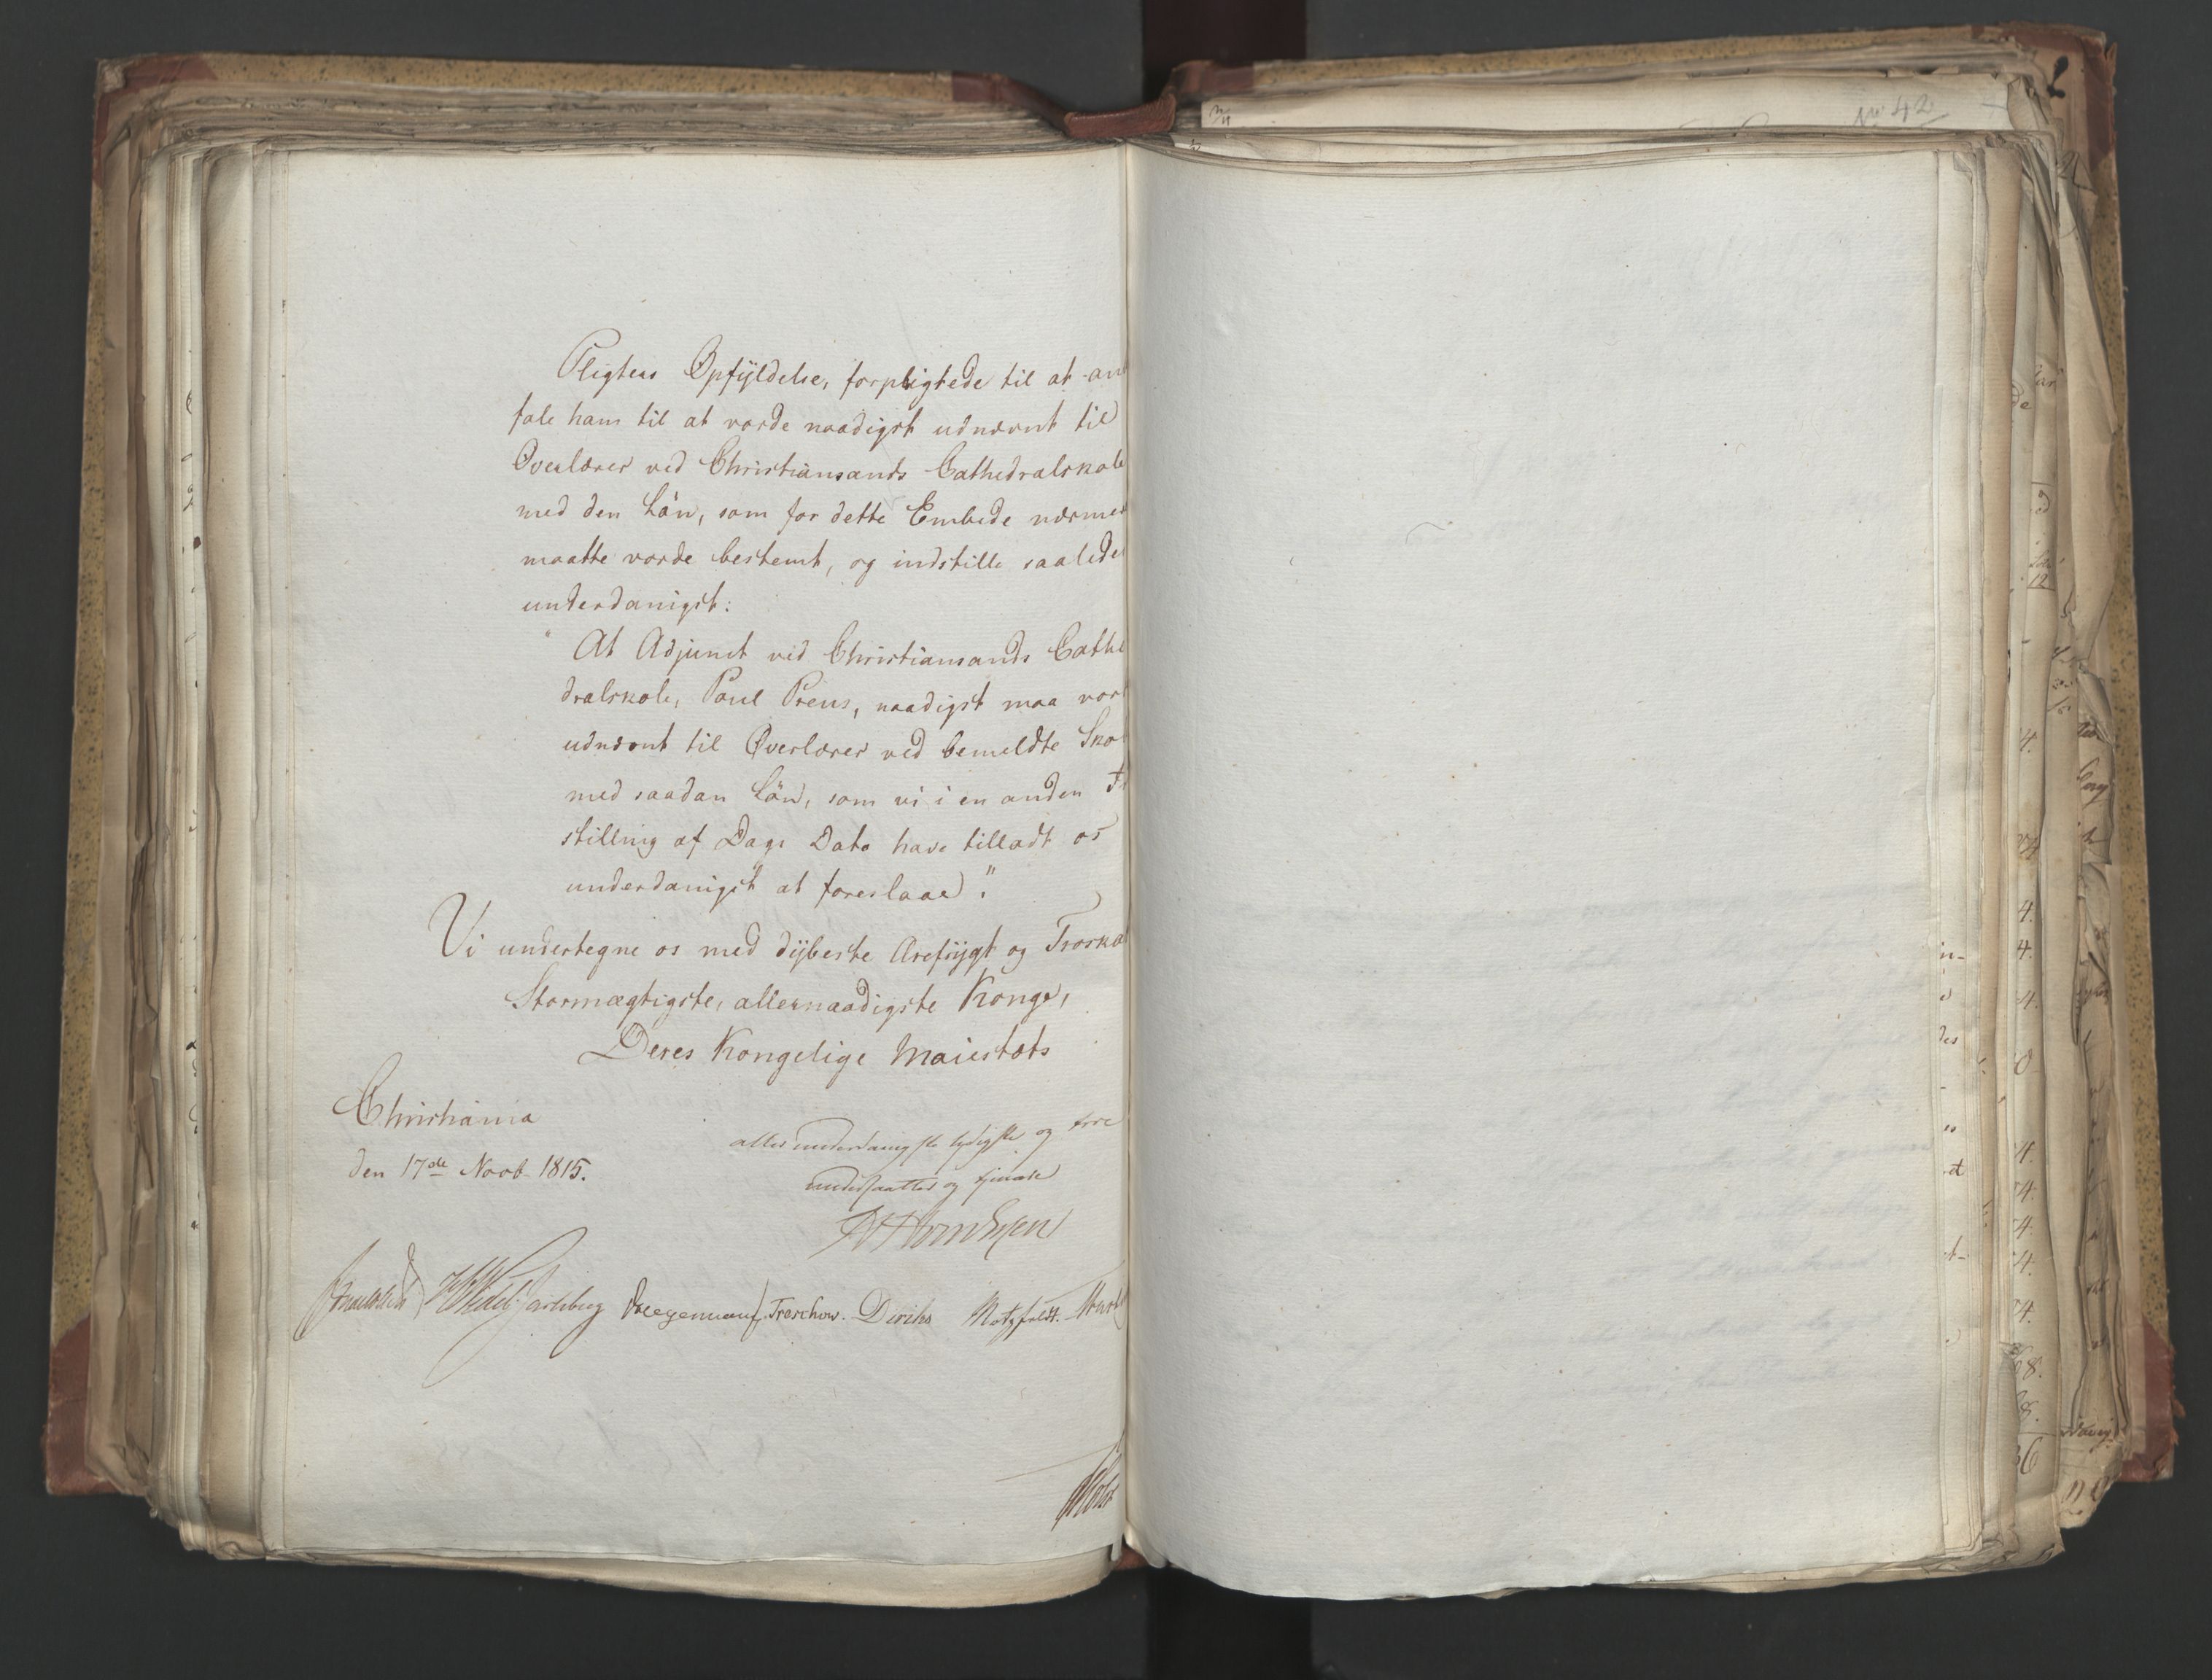 No 42
Pligters Opfÿldelse, forpligtede til at an
fale ham til at vorde naadigst udnævnt til
Overlærer ved Christiansands Cathedralskole
med den Lön, som for dette Embede nærmer
maatte vorde bestemt, og indstille saalede
underdanigst:
"At Adjunct ved Christiansands Cathe
dralskole, Poul Preus, naadigst maa vor
udnævnt til Overlærer ved bemeldte Sko
med saadan Lön, som vi i en anden
stilling af Dags Dato have tilladt os
underdanigst at foreslaae".
Vi undertegne os med dÿbeste Ærefrÿgt og Troska
Stormægtigste, allernaadigste Konge,
Deres Kongelige Maiestæts
Christiania
den 17de Novb 1815.
allerunderdanigste lydigste og troe
undersaatter og tjenere
Wedel Jarlsberg Hegermann Treschow. Diriks Motzfeldt.
Holst